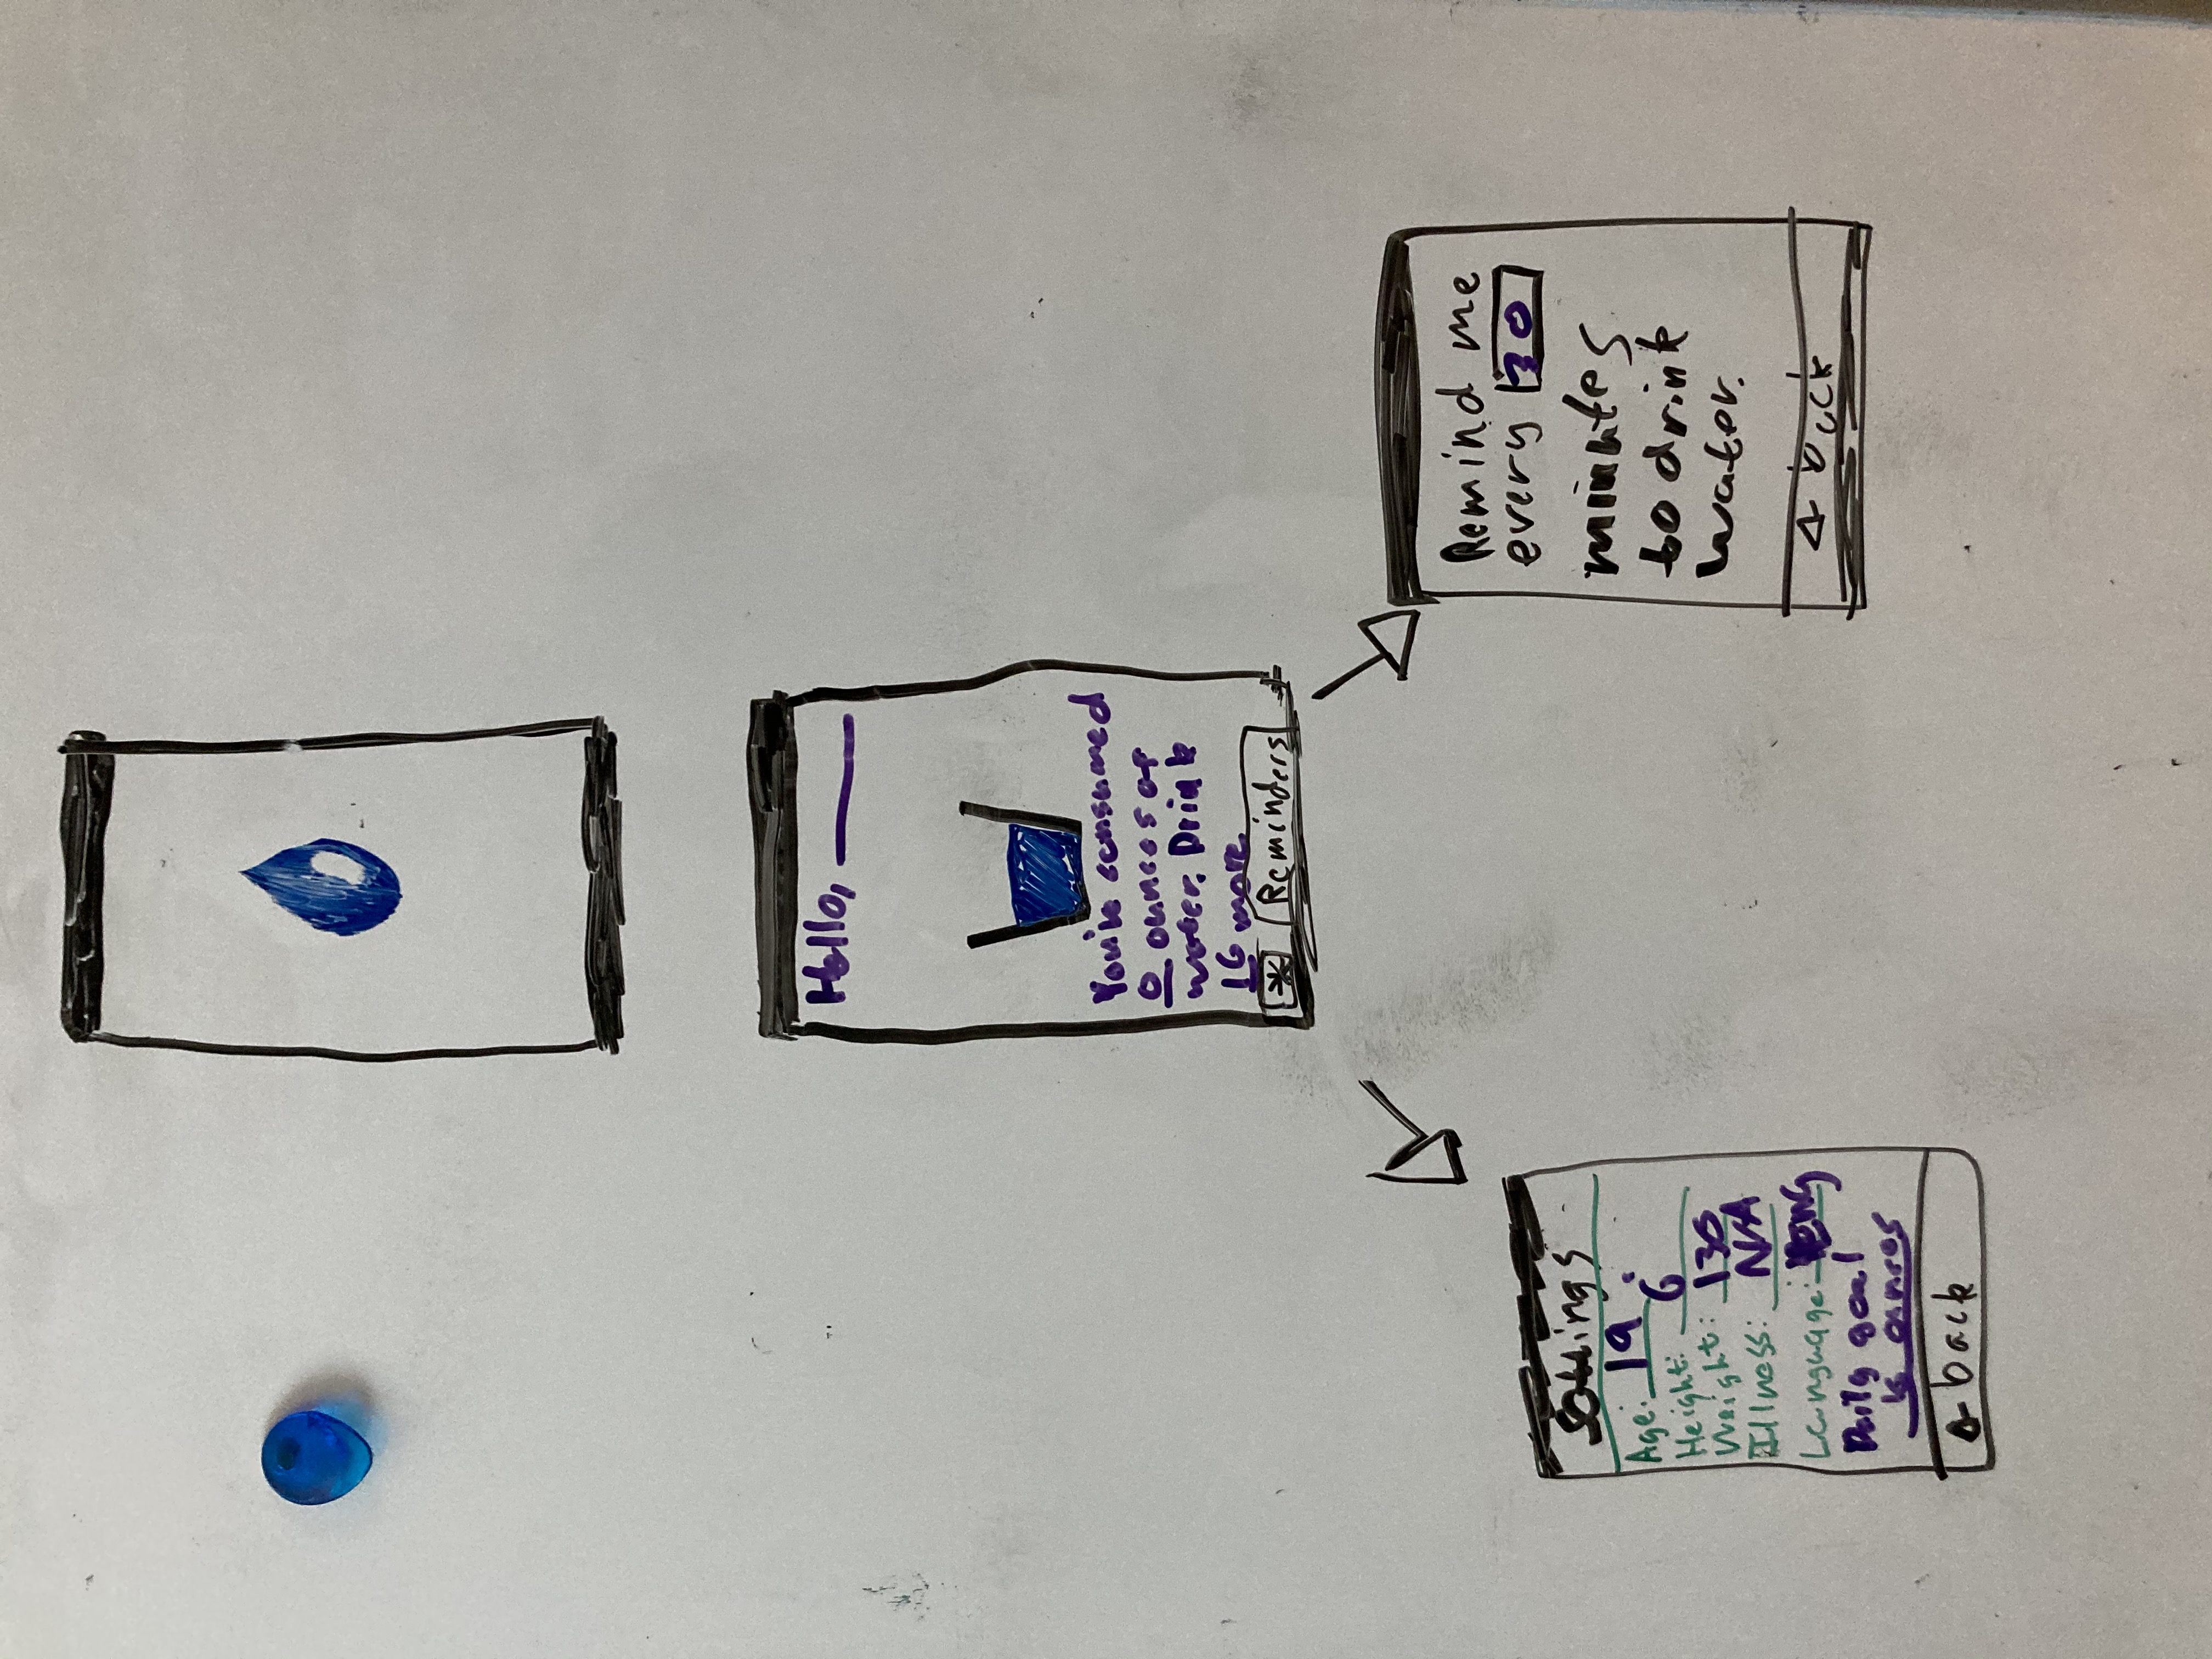 Hello,
You've consumed
0 ounces of
water. Drink
16 more.
* Reminders
Settings
Age: 19
Height: 6'
Weight: 130
Illness: N/A
Language: ENG
Daily goal
16 ounces
back
Remind me
every 30
minutes
to drink
water.
back